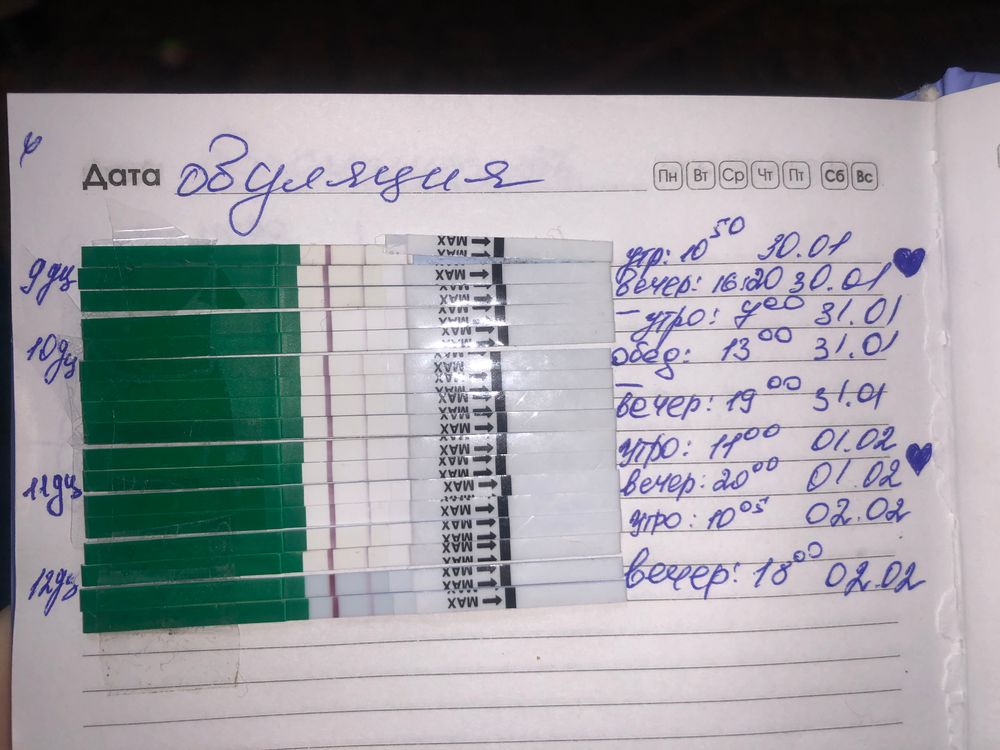 Дата овуляция Пн Вт Ср Чт Пт Сб Вс
9дц
10дц
11дц
12дц
MAX
MAX
MAX
MAX
MAX
MAX
MAX
MAX
MAX
MAX
MAX
MAX
MAX
MAX
MAX
MAX
MAX
утр: 10 50 30.01
вечер: 16:20 30.01
– утро: 7 00 31.01
обед: 13 00 31.01
вечер: 19 00 31.01
утро: 11 00 01.02
вечер: 20 00 01.02
утро: 10 05 02.02
вечер: 18 00 02.02